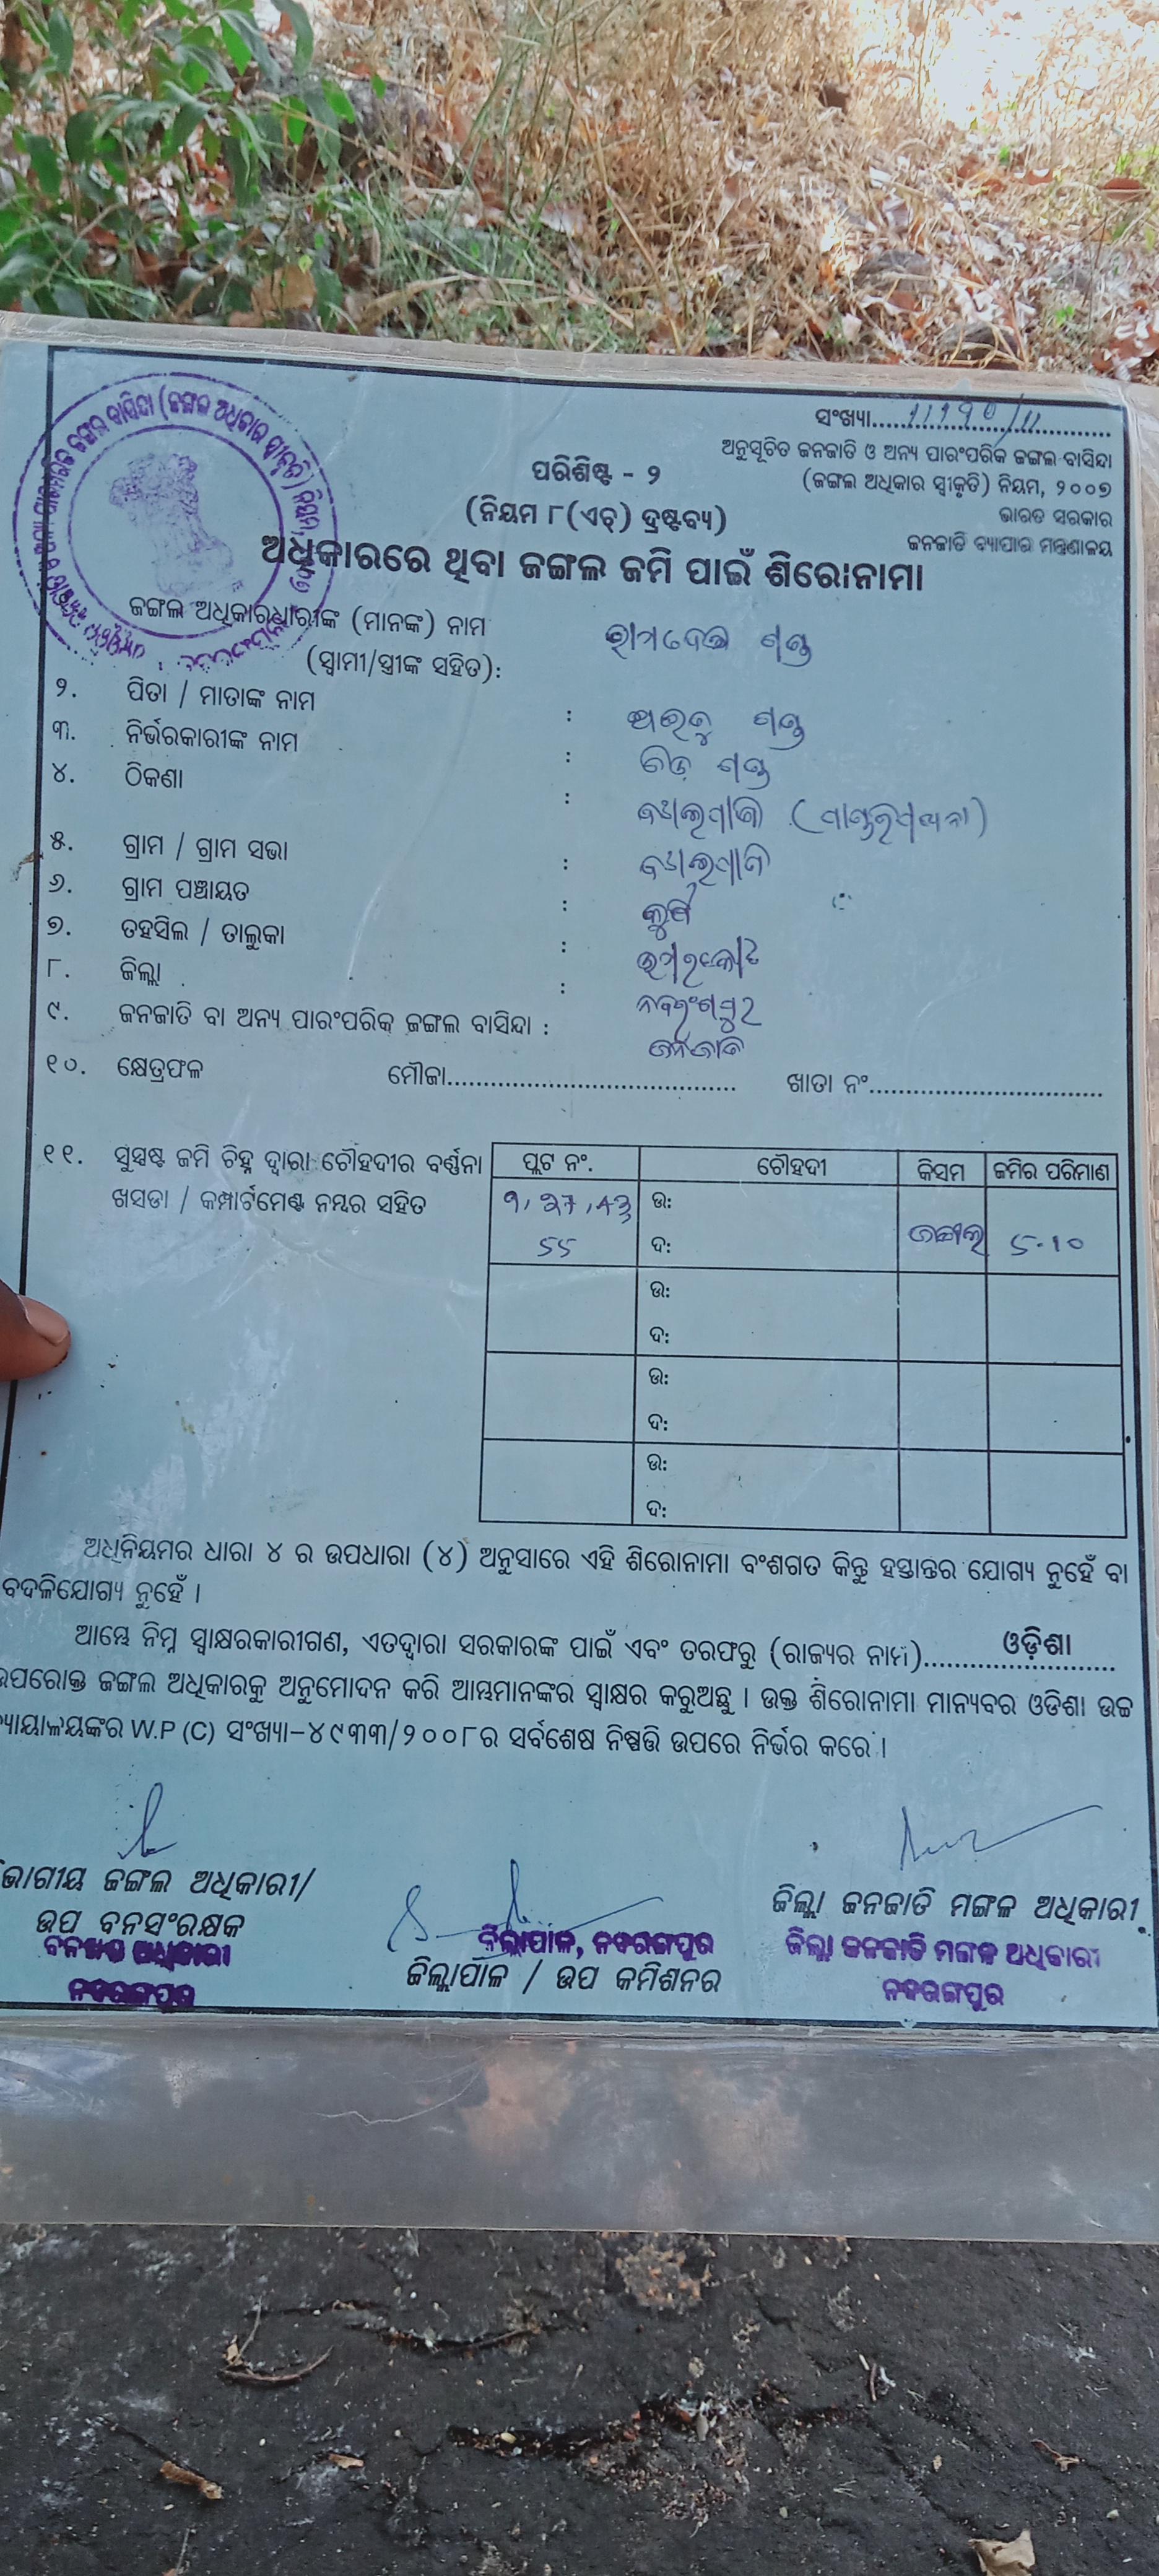 ସଂଖ୍ୟା
ଅନୁସୂଚିତ ଜନଜାତି ଓ ଅନ୍ୟ ପାରଂପରିକ ଜଙ୍ଗଲ ବାସିନ୍ଦା
(ଜଙ୍ଗଲ ଅଧିକାର ସ୍ୱୀକୃତି) ନିୟମ, ୨୦୦୭
ଭାରତ ସରକାର
ଜନଜାତି ବ୍ୟାପାର ମନ୍ତ୍ରଣାଳୟ
ପରିଶିଷ୍ଟ - ୨
(ନିୟମ ୮(ଏଚ୍) ଦ୍ରଷ୍ଟବ୍ୟ)
ଅଧିକାରରେ ଥିବା ଜଙ୍ଗଲ ଜମି ପାଇଁ ଶିରୋନାମା
ଜଙ୍ଗଲ ଅଧିକାରଧାରୀଙ୍କ (ମାନଙ୍କ) ନାମ
(ସ୍ୱାମୀ/ସ୍ତ୍ରୀଙ୍କ ସହିତ):
୨. ପିତା / ମାତାଙ୍କ ନାମ :
୩. ନିର୍ଭରକାରୀଙ୍କ ନାମ :
୪. ଠିକଣା :
୫. ଗ୍ରାମ / ଗ୍ରାମ ସଭା :
୬. ଗ୍ରାମ ପଞ୍ଚାୟତ :
୭. ତହସିଲ / ତାଲୁକା : ଉମରକୋଟ
୮. ଜିଲ୍ଲା : ନବରଂଗପୁର
୯. ଜନଜାତି ବା ଅନ୍ୟ ପାରଂପରିକ ଜଙ୍ଗଲ ବାସିନ୍ଦା : ଜନଜାତି
୧୦. କ୍ଷେତ୍ରଫଳ ମୌଜା........................................ ଖାତା ନଂ................................
୧୧. ସୁସ୍ପଷ୍ଟ ଜମି ଚିହ୍ନ ଦ୍ୱାରା ଚୌହଦୀର ବର୍ଣ୍ଣନା
ଖସଡା / କମ୍ପାର୍ଟମେଣ୍ଟ ନମ୍ବର ସହିତ
ପ୍ଲଟ ନଂ. ଚୌହଦୀ କିସମ ଜମିର ପରିମାଣ
ଉ:
55 ଦ: ଜଙ୍ଗଲ 5.10
ଉ:
ଦ:
ଉ:
ଦ:
ଉ:
ଦ:
ଅଧିନିୟମର ଧାରା ୪ ର ଉପଧାରା (୪) ଅନୁସାରେ ଏହି ଶିରୋନାମା ବଂଶଗତ କିନ୍ତୁ ହସ୍ତାନ୍ତର ଯୋଗ୍ୟ ନୁହେଁ ବା
ବଦଳିଯୋଗ୍ୟ ନୁହେଁ ।
ଆମ୍ଭେ ନିମ୍ନ ସ୍ୱାକ୍ଷରକାରୀଗଣ, ଏତଦ୍ୱାରା ସରକାରଙ୍କ ପାଇଁ ଏବଂ ତରଫରୁ (ରାଜ୍ୟର ନାମ).......ଓଡ଼ିଶା.......
ଉପରୋକ୍ତ ଜଙ୍ଗଲ ଅଧିକାରକୁ ଅନୁମୋଦନ କରି ଆମ୍ଭମାନଙ୍କର ସ୍ୱାକ୍ଷର କରୁଅଛୁ । ଉକ୍ତ ଶିରୋନାମା ମାନ୍ୟବର ଓଡିଶା ଉଚ୍ଚ
ନ୍ୟାୟାଳୟଙ୍କର W.P (C) ସଂଖ୍ୟା-୪୯୩୩/୨୦୦୮ର ସର୍ବଶେଷ ନିଷ୍ପତ୍ତି ଉପରେ ନିର୍ଭର କରେ ।
ବିଭାଗୀୟ ଜଙ୍ଗଲ ଅଧିକାରୀ/
ଉପ ବନସଂରକ୍ଷକ
ବନଖଣ୍ଡ ଅଧିକାରୀ
ନବରଙ୍ଗପୁର
ଜିଲ୍ଲାପାଳ, ନବରଙ୍ଗପୁର
ଜିଲ୍ଲାପାଳ / ଉପ କମିଶନର
ଜିଲ୍ଲା ଜନଜାତି ମଙ୍ଗଳ ଅଧିକାରୀ
ଜିଲ୍ଲା ଜନଜାତି ମଙ୍ଗଳ ଅଧିକାରୀ
ନବରଙ୍ଗପୁର